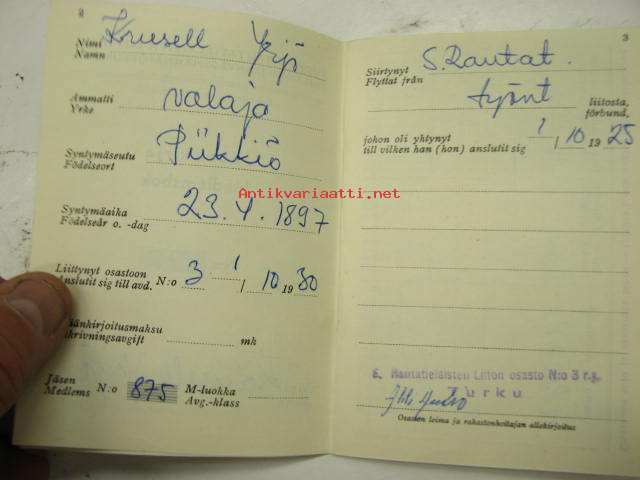 2
Nimi Krusell Yrjö
Namn
Ammatti valaja
Yrke
Syntymäseutu Piikkiö
Födelseort
Syntymäaika 23.4.1897
Födelseår o. -dag
Liittynyt osastoon N:o 3 1/10 1930
Anslutit sig till avd.
äänkirjoitusmaksu mk
skrivningsavgift
Jäsen N:o 875 M-luokka
Medlems Avg.-klass
3
Siirtynyt S. Rautat.
Flyttat från
työnt liitosta,
förbund,
johon oli yhtynyt 1/10 1925
till vilken han (hon) anslutit sig
Antikvariaatti.net
S. Rautatieläisten Liiton osasto N:o 3 r.y.
Turku
Osaston leima ja rahastonhoitajan allekirjoitus